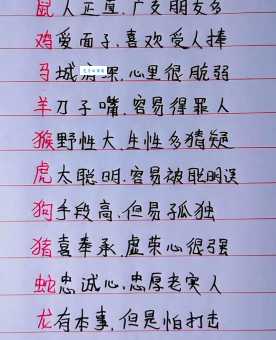 鼠人正直,广交朋友多
鸡爱面子,喜欢受人捧
马城府深,心里很脆弱
羊刀子嘴,容易得罪人
猴野性大,生性多猜疑
虎太聪明,容易被聪明误
狗手段高,但易孤独
猪喜奉承,虚荣心很强
蛇忠诚心,忠厚老实人
龙有本事,但是怕打击